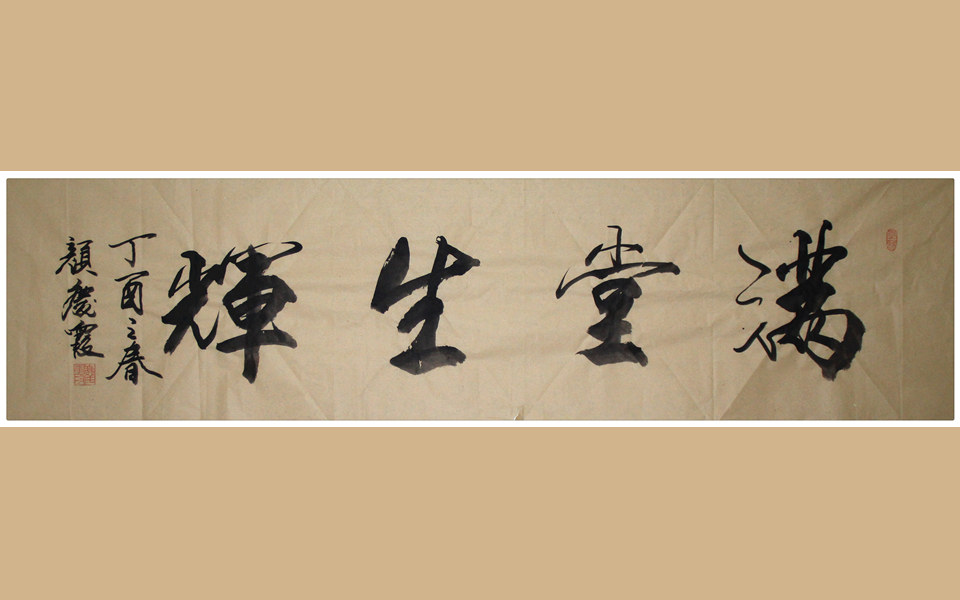 滿堂生輝
丁酉之春
顏慶霞